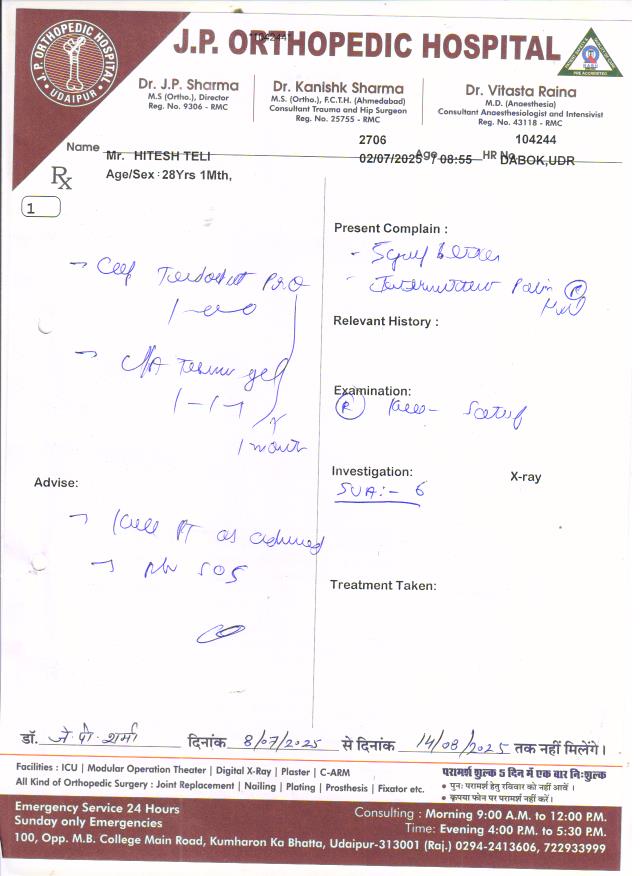 J.P. ORTHOPEDIC HOSPITAL
UDAIPUR
J.P. ORTHOPEDIC HOSPITAL
Dr. J.P. Sharma
M.S (Ortho.), Director
Reg. No. 9306 - RMC
Dr. Kanishk Sharma
M.S. (Ortho.), F.C.T.H. (Ahmedabad)
Consultant Trauma and Hip Surgeon
Reg. No. 25755 - RMC
Dr. Vitasta Raina
M.D. (Anaesthesia)
Consultant Anaesthesiologist and Intensivist
Reg. No. 43118 - RMC
2706 104244
Name Mr. HITESH TELI 02/07/2025 / 08:55 Age HR No. DABOK,UDR
Rx Age/Sex : 28Yrs 1Mth,
1
Present Complain :
- Intermittent Pain (R)
Relevant History :
1-0-0
gel
1-1-1
x
1 month
Examination:
(R) Knee -
Investigation: X-ray
SUA:- 6
Advise:
→ Knee PT as advised
→ SOS
Treatment Taken:
डॉ. जे.पी. शर्मा दिनांक 8/07/2025 से दिनांक 14/08/2025 तक नहीं मिलेंगे।
Facilities : ICU | Modular Operation Theater | Digital X-Ray | Plaster | C-ARM
All Kind of Orthopedic Surgery : Joint Replacement | Nailing | Plating | Prosthesis | Fixator etc.
परामर्श शुल्क 5 दिन में एक बार निःशुल्क
• पुनः परामर्श हेतु रविवार को नहीं आवें ।
• कृपया फोन पर परामर्श नहीं करें।
Emergency Service 24 Hours
Sunday only Emergencies
Consulting : Morning 9:00 A.M. to 12:00 P.M.
Time: Evening 4:00 P.M. to 5:30 P.M.
100, Opp. M.B. College Main Road, Kumharon Ka Bhatta, Udaipur-313001 (Raj.) 0294-2413606, 722933999